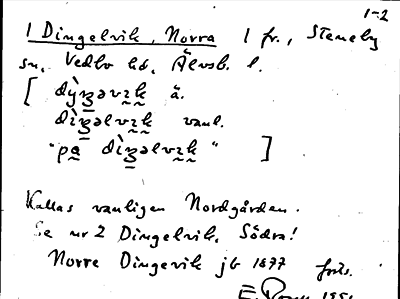 1-2
1 Dingelvik, Norra 1 fr., Steneby
sn, Vedbo hd, Älvsb. l.
[ dỳŋəvɪk ä.
dìŋəlvɪk vanl.
"pa dìŋəlvɪk" ]
Kallas vanligen Nordgården.
Se nr 2 Dingelvik, Södra!
Norre Dingevik jb 1877 forts.